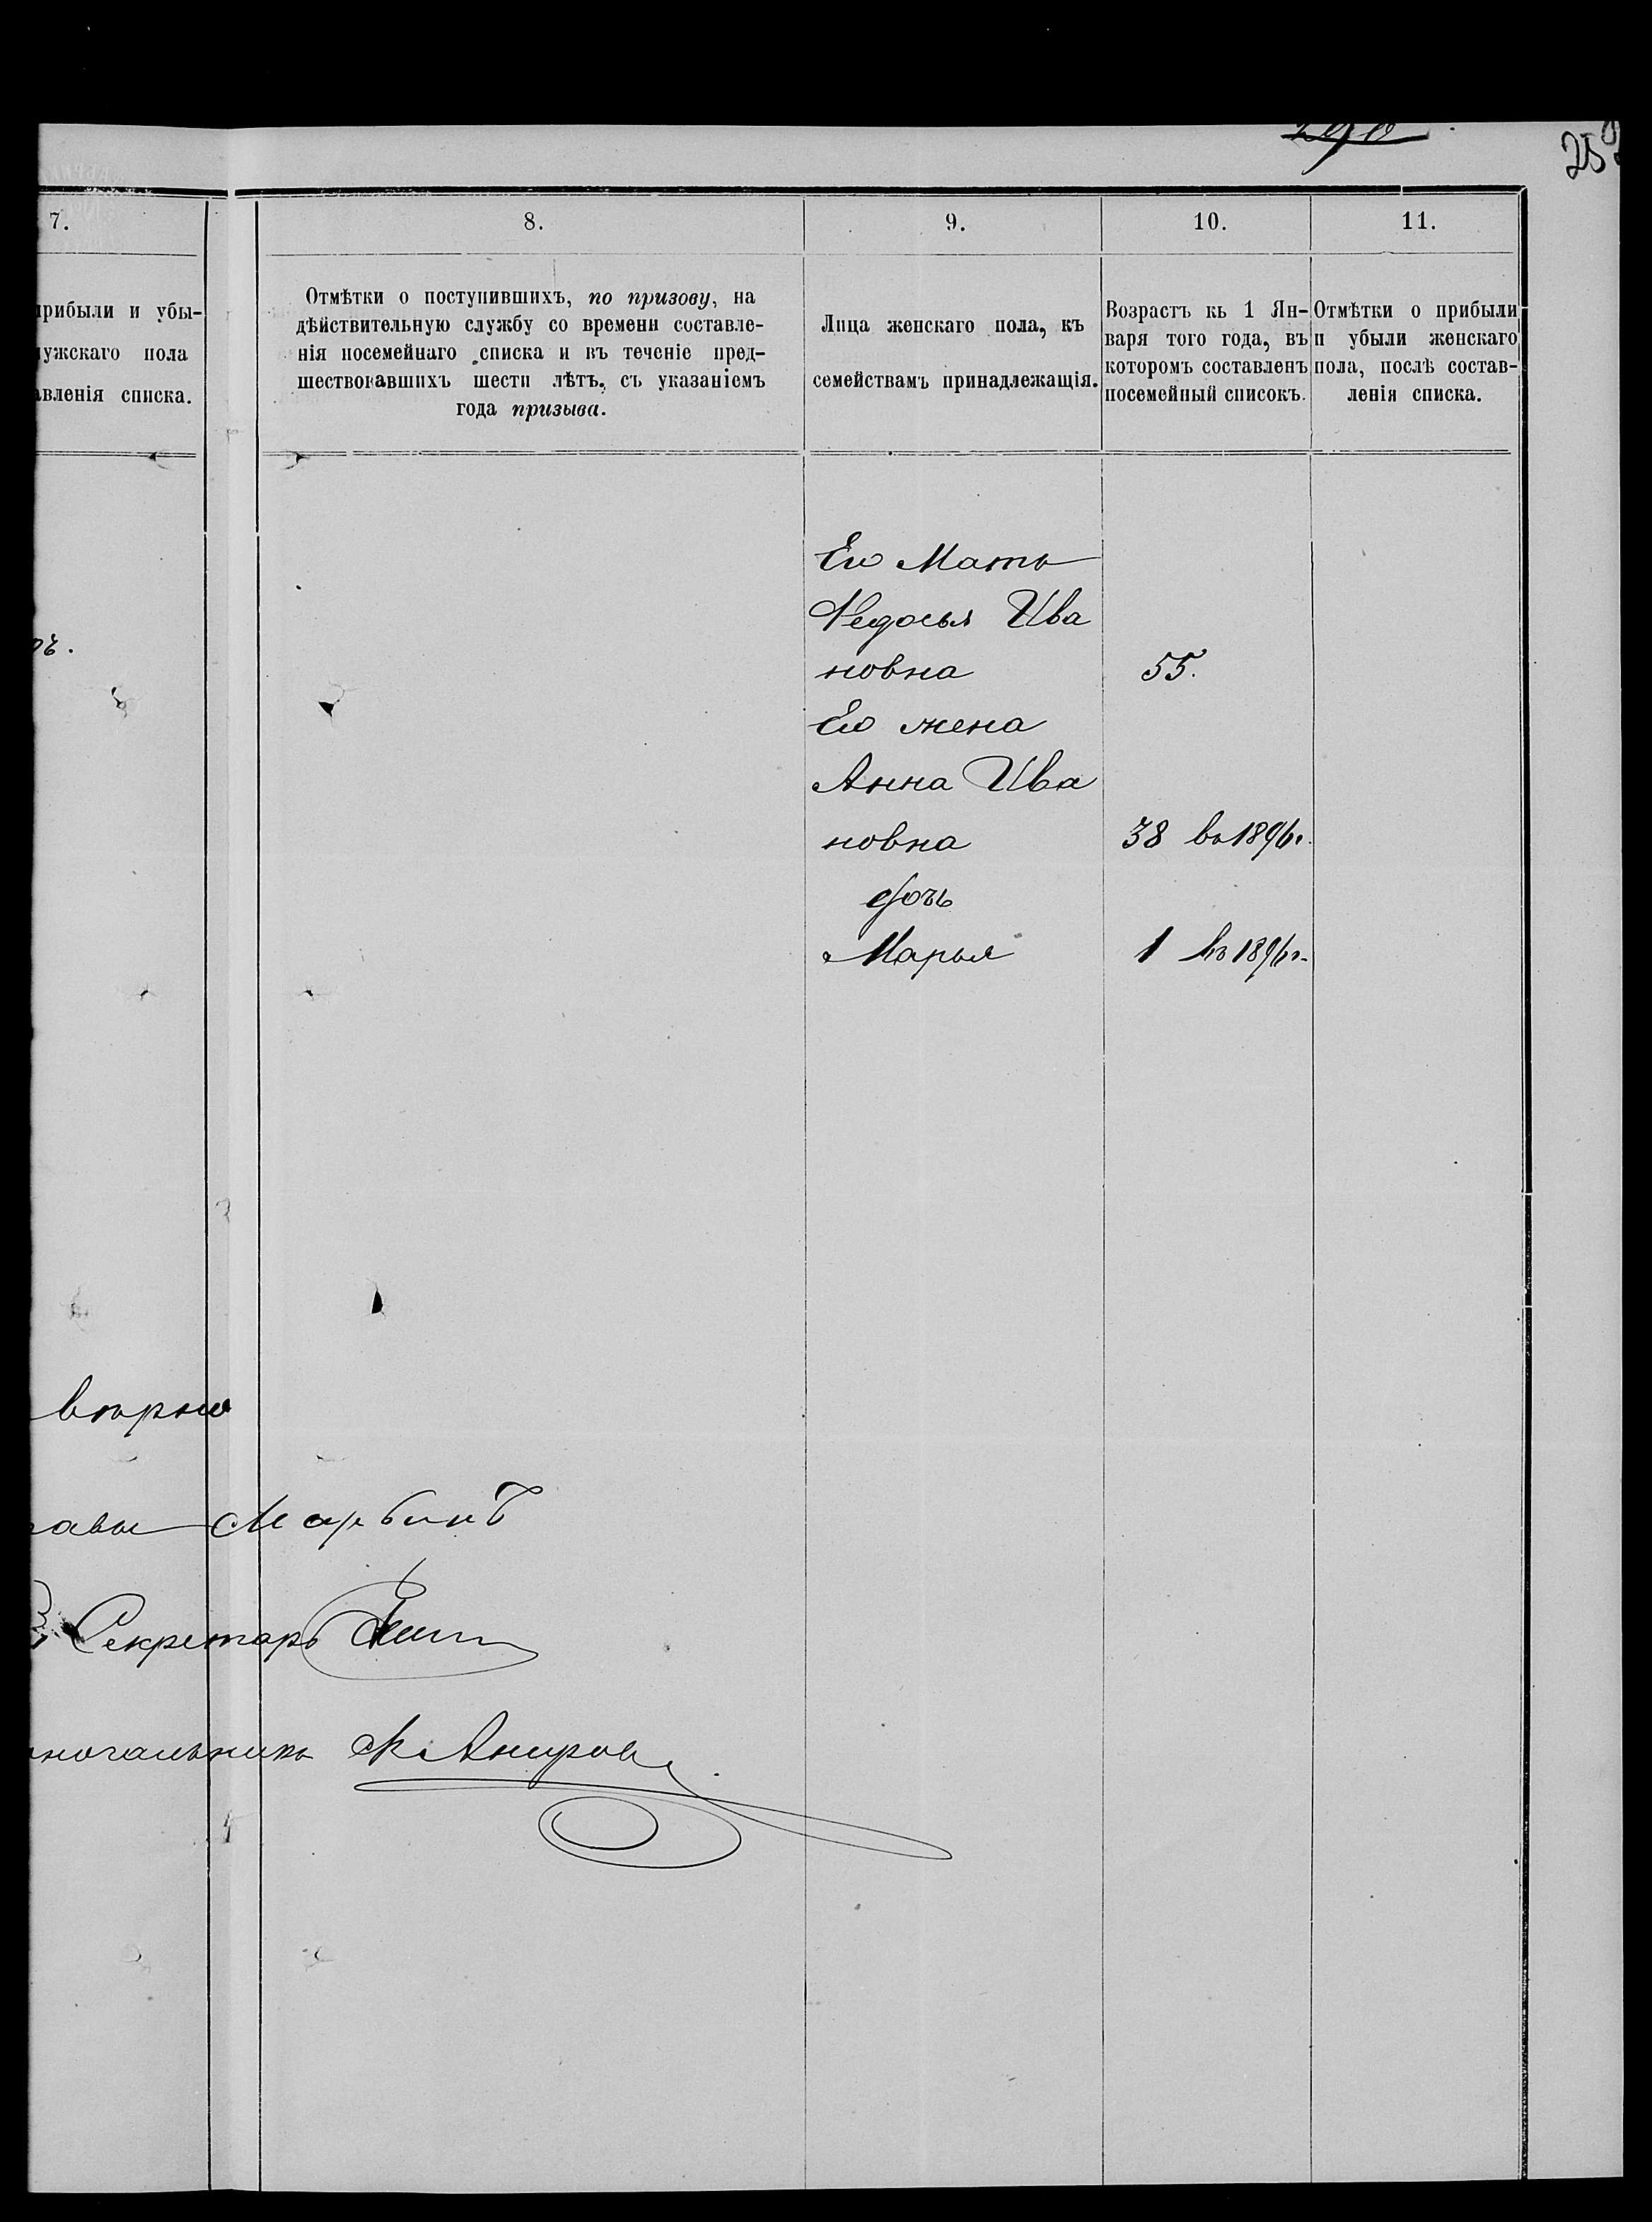 290
7.
8.
9.
10.
11.
прибыли и убы-
мужскаго пола
авленія списка.
Отмѣтки о поступившихъ, по призову, на
дѣйствительную службу со времени составле-
нія посемейнаго списка и въ теченіе пред-
шествовавшихъ шести лѣтъ, съ указаніемъ
года призыва.
Лица женскаго пола, къ
семействамъ принадлежащія.
Возрастъ къ 1 Ян-
варя того года, въ
которомъ составленъ
посемейный списокъ.
Отмѣтки о прибыли
и убыли женскаго
пола, послѣ состав-
ленія списка.
Его Мать
Федосья Ива
новна 55.
Его жена
Анна Ива
новна 38 въ 1896 г.
дочь
Марья 1 въ 1896 г.
вѣрно
Секретарь